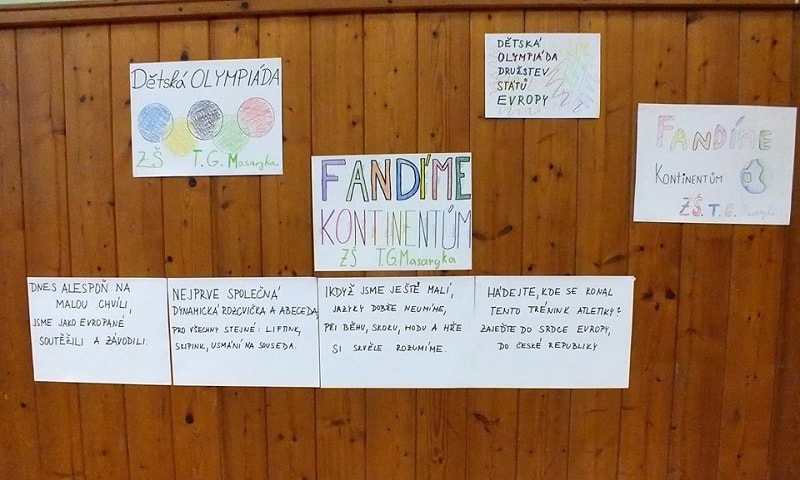 Dětská OLYMPIÁDA
ZŠ T. G. Masaryka
DĚTSKÁ
OLYMPIÁDA
DRUŽSTEV
STÁTŮ
EVROPY
FANDÍME
KONTINENTŮM
ZŠ T.G. Masaryka
FANDÍME
KONTINENTŮM
ZŠ. T. G. Masaryka
DNES ALESPOŇ NA
MALOU CHVÍLI,
JSME JAKO EVROPANÉ
SOUTĚŽILI A ZÁVODILI.
NEJPRVE SPOLEČNÁ
DYNAMICKÁ ROZCVIČKA A ABECEDA
PRO VŠECHNY STEJNÉ: LIFTINK,
SKIPINK, USMÁNÍ NA SOUSEDA.
IKDYŽ JSME JEŠTĚ MALÍ,
JAZYKY DOBŘE NEUMÍME,
PŘI BĚHU, SKOKU, HODU A HŘE
SI SKVĚLE ROZUMÍME.
HÁDEJTE, KDE SE KONAL
TENTO TRÉNINK ATLETIKY?
ZAJEĎTE DO SRDCE EVROPY,
DO ČESKÉ REPUBLIKY